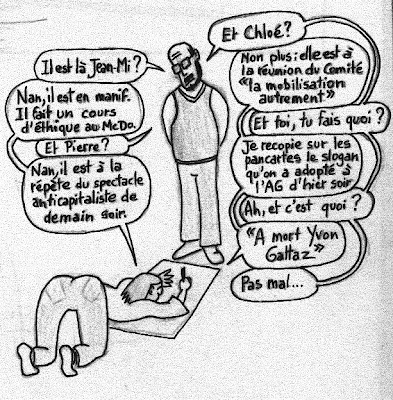 Il est là Jean-Mi ?
Nan, il est en manif.
Il fait un cours
d'éthique au McDo.
Et Pierre ?
Nan, il est à la
répète du spectacle
anticapitaliste de
demain soir.
Et Chloé ?
Non plus : elle est à
la réunion du Comité
"la mobilisation
autrement"
Et toi, tu fais quoi ?
Je recopie sur les
pancartes le slogan
qu'on a adopté à
l'AG d'hier soir
Ah, et c'est quoi ?
"A mort Yvon
Gattaz"
Pas mal...